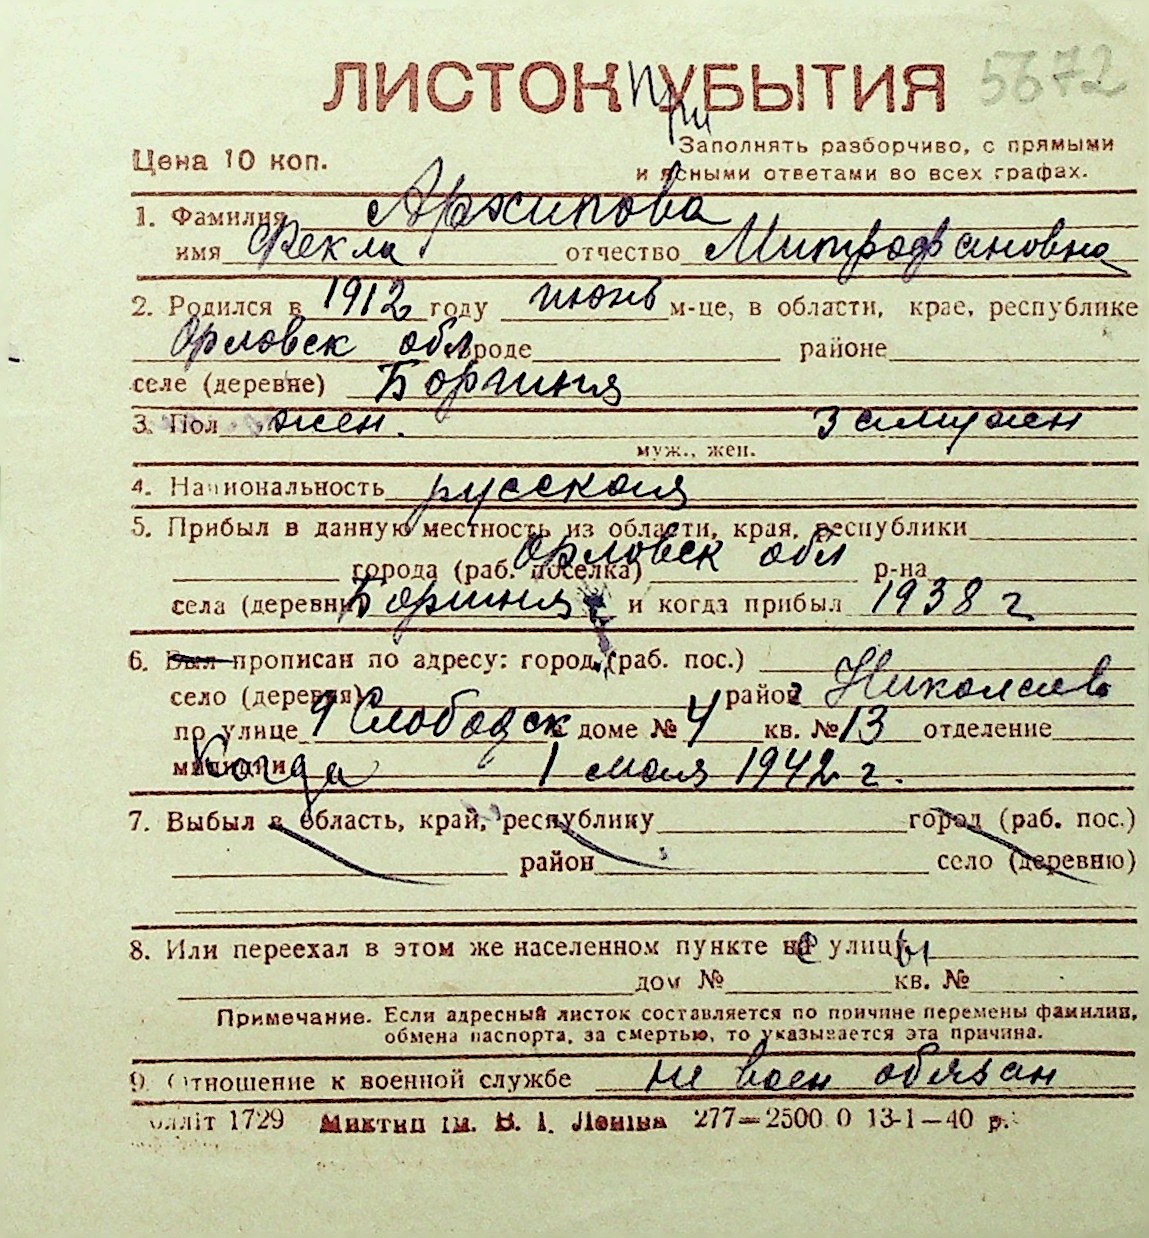 ЛИСТОК при УБЫТИЯ 5672
Цена 10 коп.
Заполнять разборчиво, с прямыми
и ясными ответами во всех графах.
1. Фамилия Архипова
имя Фекла отчество Митрофановна
2. Родился в 1912 году июнь м-це, в области, крае, республике
Орловск обл городе районе
селе (деревне) Боргиня
3. Пол жен. Замужен
муж., жен.
4. Национальность русская
5. Прибыл в данную местность из области, края, республики
Орловск обл
города (раб. поселка) р-на
села (деревни) и когда прибыл 1938 г
6. Был прописан по адресу: город (раб. пос.)
село (деревня) район г Николаев
по улице 9 Слободск доме № 4 кв. № 13 отделение
милиции Когда 1 мая 1942 г.
7. Выбыл в область, край, республику город (раб. пос.)
район село (деревню)
8. Или переехал в этом же населенном пункте на улицу
дом № кв. №
Примечание. Если адресный листок составляется по причине перемены фамилии,
обмена паспорта, за смертью, то указывается эта причина.
9. Отношение к военной службе не воен обязан
1729 Миктип ім. В. І. Леніна 277—2500 0 13-1—40 р.